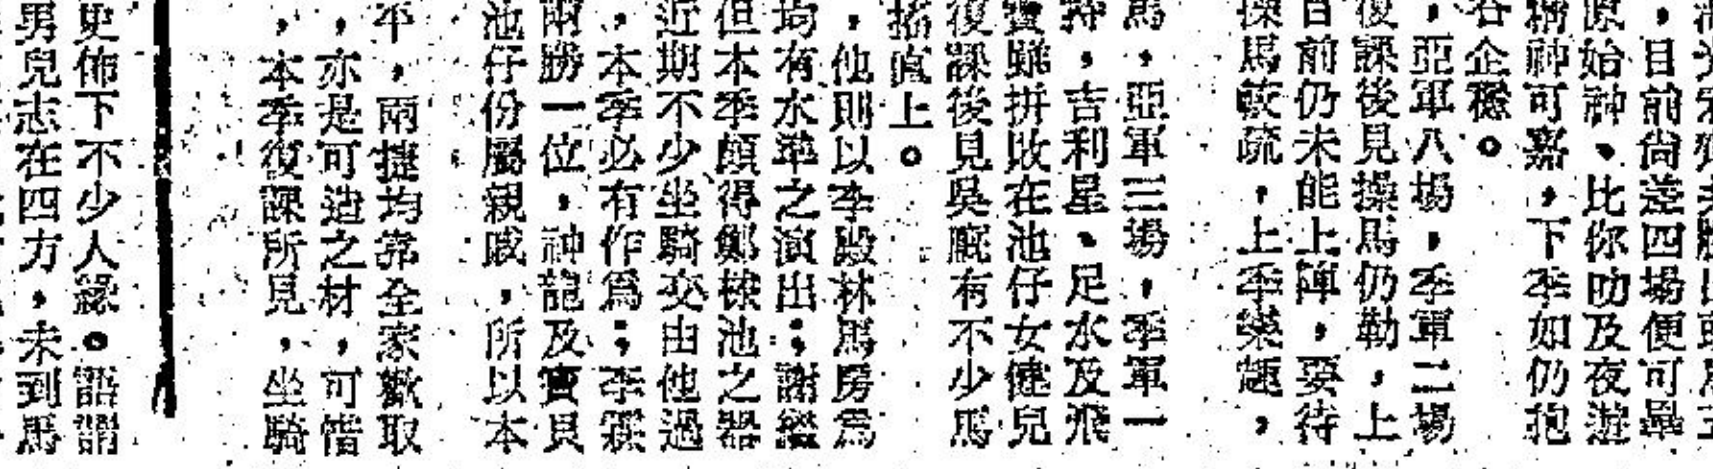 ，目前尚差四場便可畢
原始神、比你叻及夜遊
精神可嘉，下季如仍抱
各企穩。
，亞軍八場，季軍二場
後課後見操馬仍勒，上
目前仍未能上陣，要待
操馬較疏，上季樂趣，
馬，亞軍三場，季軍一
持，吉利星、足水及飛
寶雖拼敗在池仔女健兒
復課後見吳廐有不少馬
搖直上。
，他則以李殿林馬房為
均有水準之演出；謝繼
但本季頗得鄭棣池之器
近期不少坐騎交由他過
，本季必有作為；李霖
兩勝一位，神龍及寶貝
池仔份屬親戚，所以本
平，兩捷均靠全家歡取
，亦是可造之材，可惜
，本季復課所見，坐騎
史佈下不少人緣。語謂
男兒志在四方，未到馬